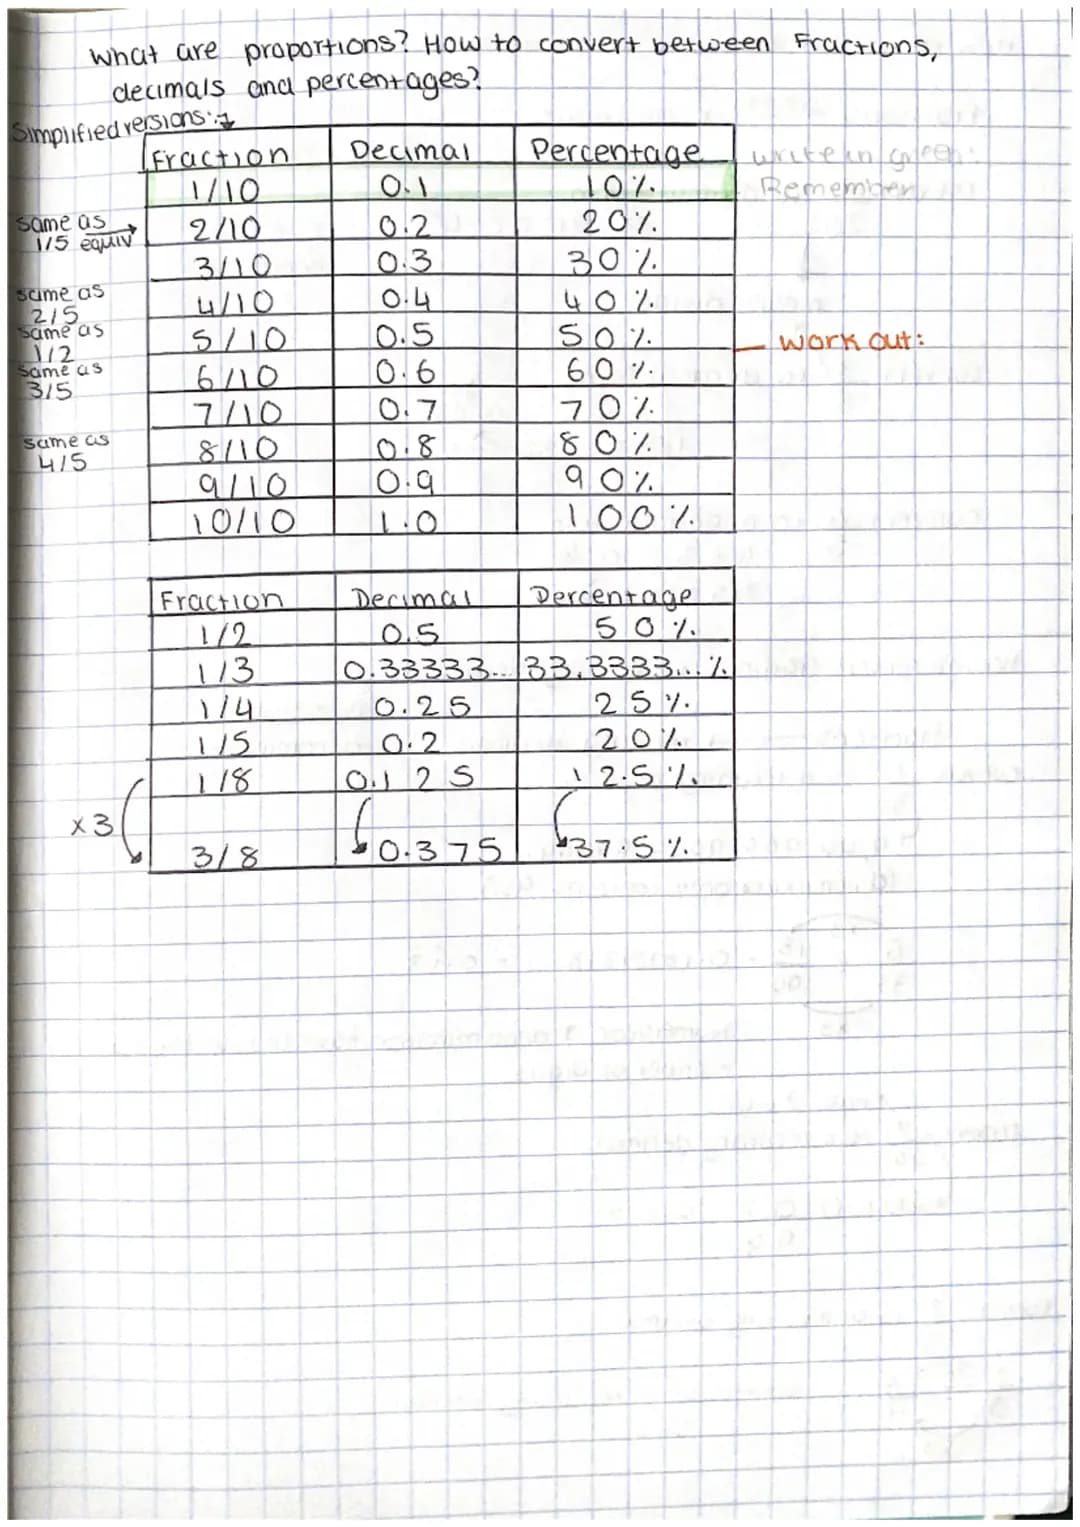 What are proportions? How to convert between Fractions,
decimals and percentages?
Simplified versions:
Fraction Decimal Percentage write in green:
1/10 0.1 10% Remember
same as 1/5 equiv 2/10 0.2 20%
3/10 0.3 30%
same as 2/5 4/10 0.4 40%
same as 1/2 5/10 0.5 50% work out:
same as 3/5 6/10 0.6 60%
7/10 0.7 70%
same as 4/5 8/10 0.8 80%
9/10 0.9 90%
10/10 1.0 100%
Fraction Decimal Percentage
1/2 0.5 50%
1/3 0.33333... 33.3333...%
1/4 0.25 25%
1/5 0.2 20%
1/8 0.125 12.5%
x3
3/8 0.375 37.5%